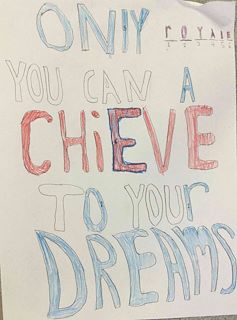 ONlY
royAlE
1 2 3 4 5 6
YOU CAN A
CHiEVE
TO YOUr
DREAMS